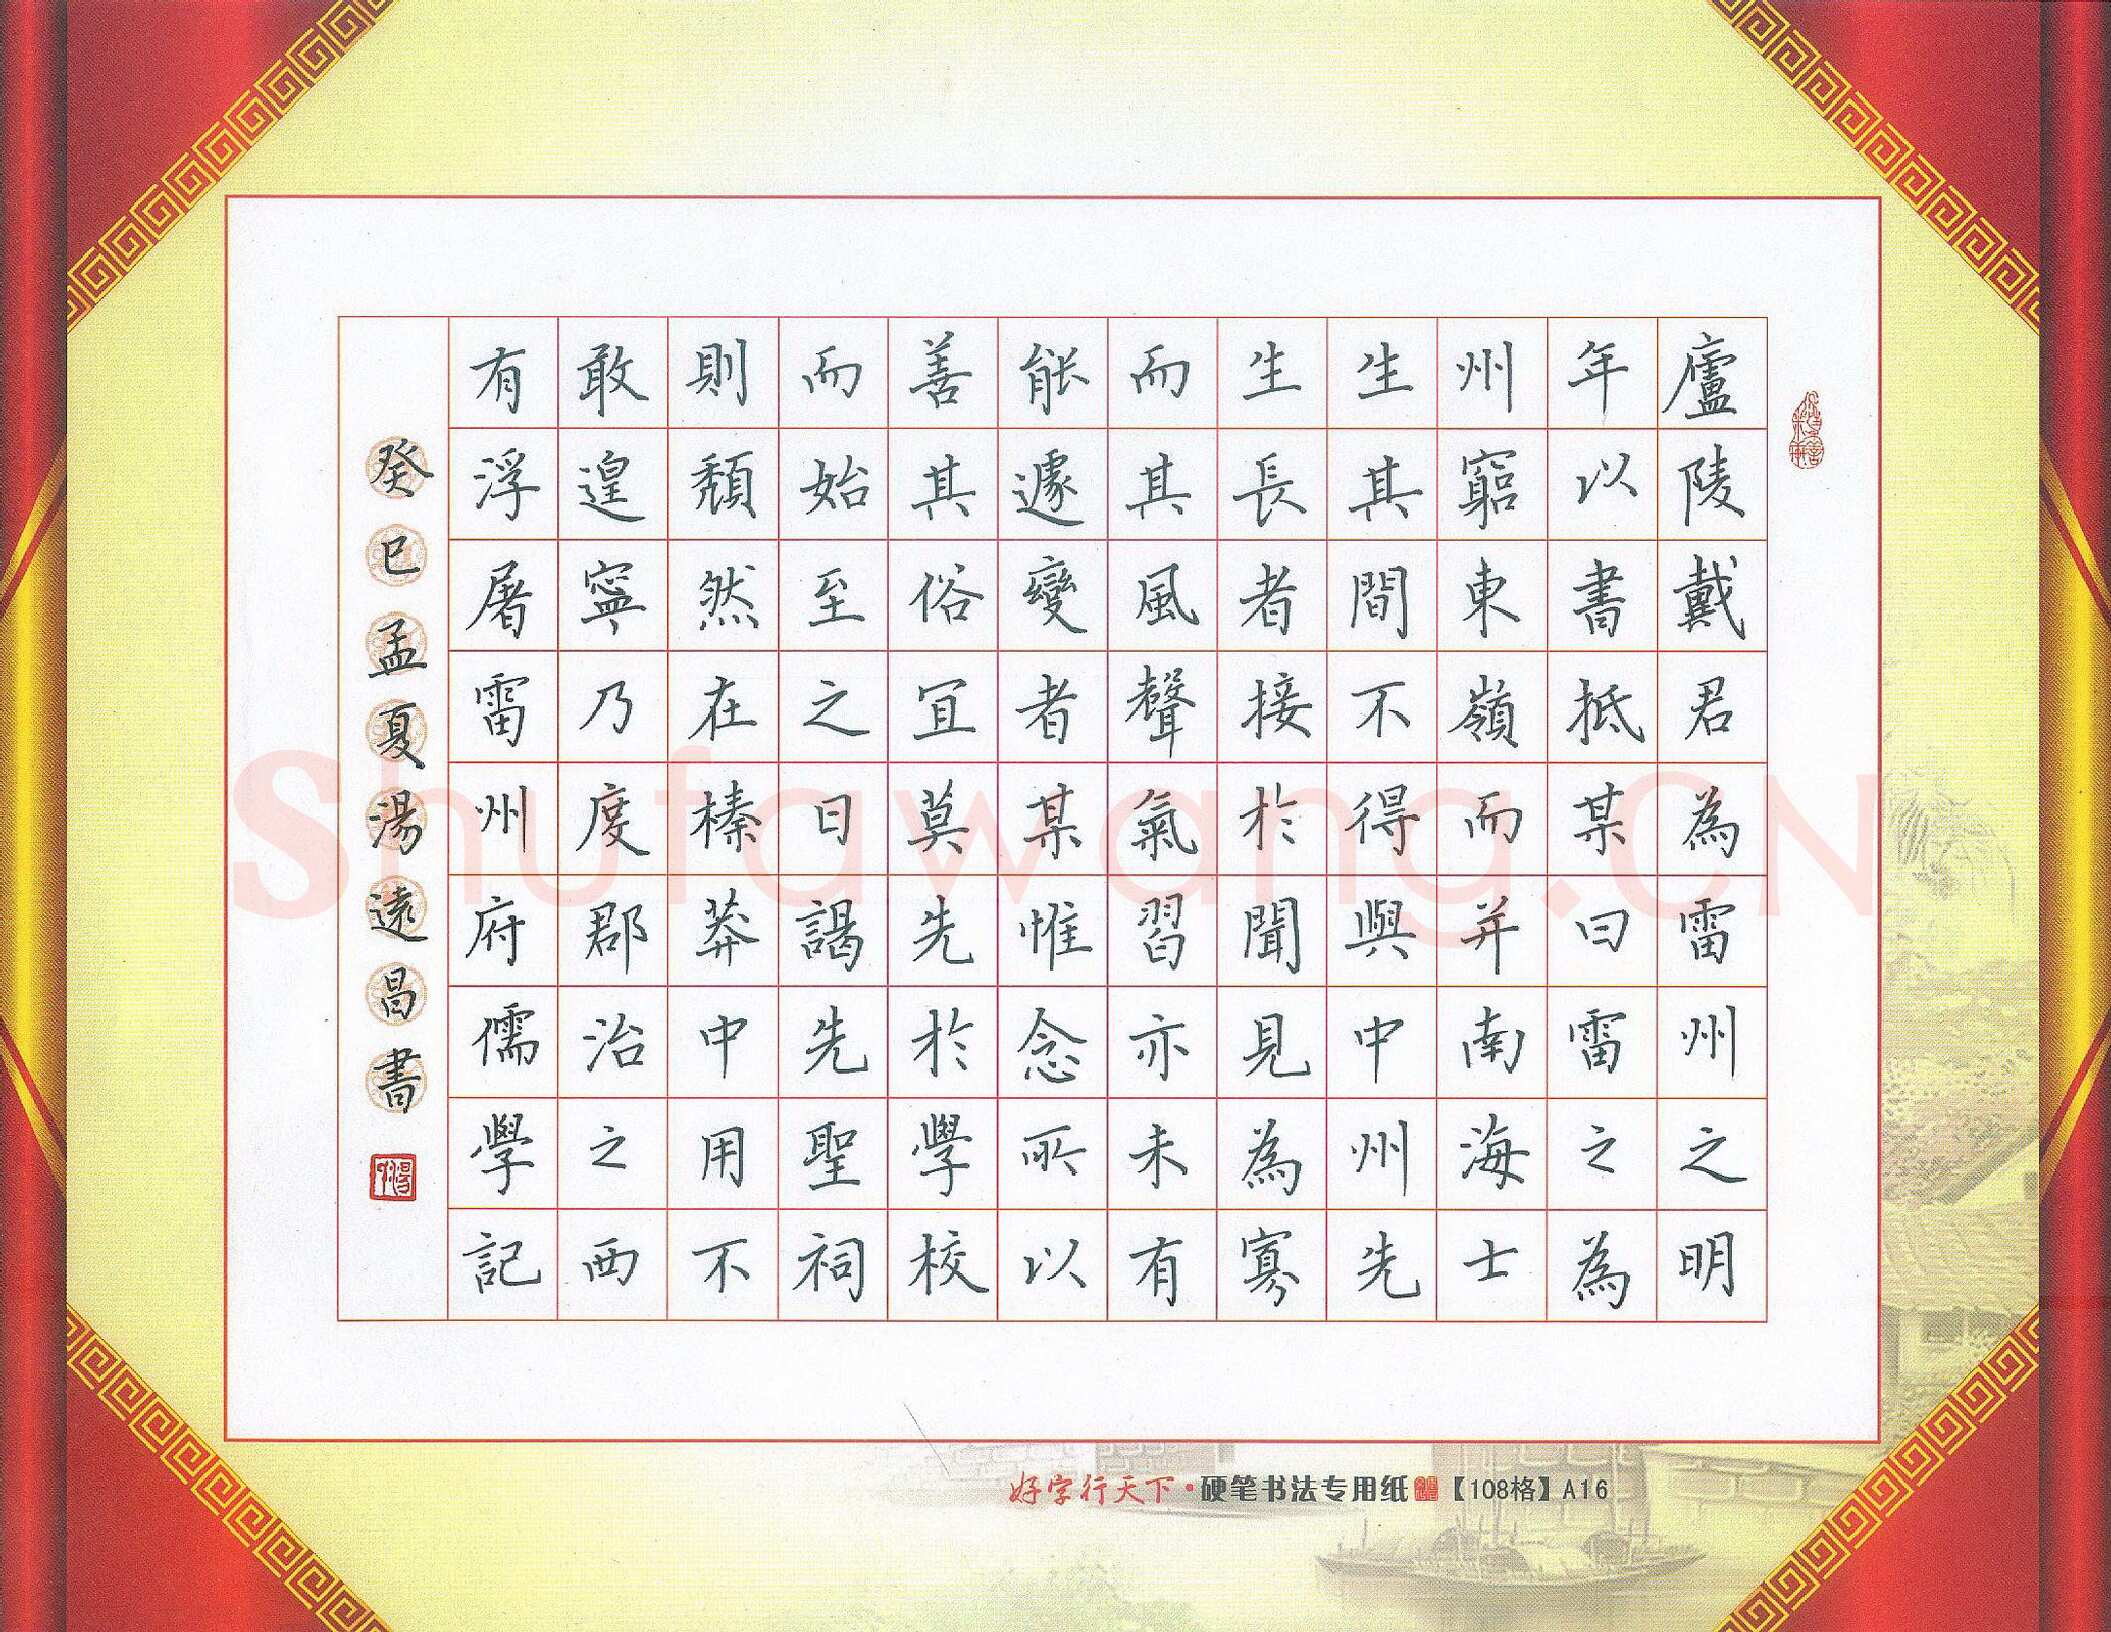 廬陵戴君為雷州之明
年以書抵某曰雷之為
州窮東嶺而並南海士
生其間不得與中州先
生長者接於聞見為寡
而其風聲氣習亦未有
能遽變者某惟念所以
善其俗宜莫先於學校
而始至之日謁先聖祠
則頹然在榛莽中用不
敢遑寧乃度郡治之西
有浮屠雷州府儒學記
癸巳孟夏湯遠昌書
好字行天下·硬笔书法专用纸【108格】A16
shufawang.CN